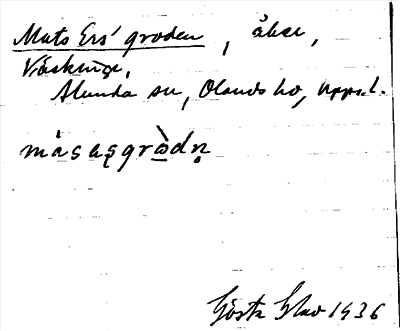 Mats Ers' groden, åker,
Väskinge,
Alunda sn, Olands hd, Uppsal.
måsasgrὼdn̥
Gösta 1936